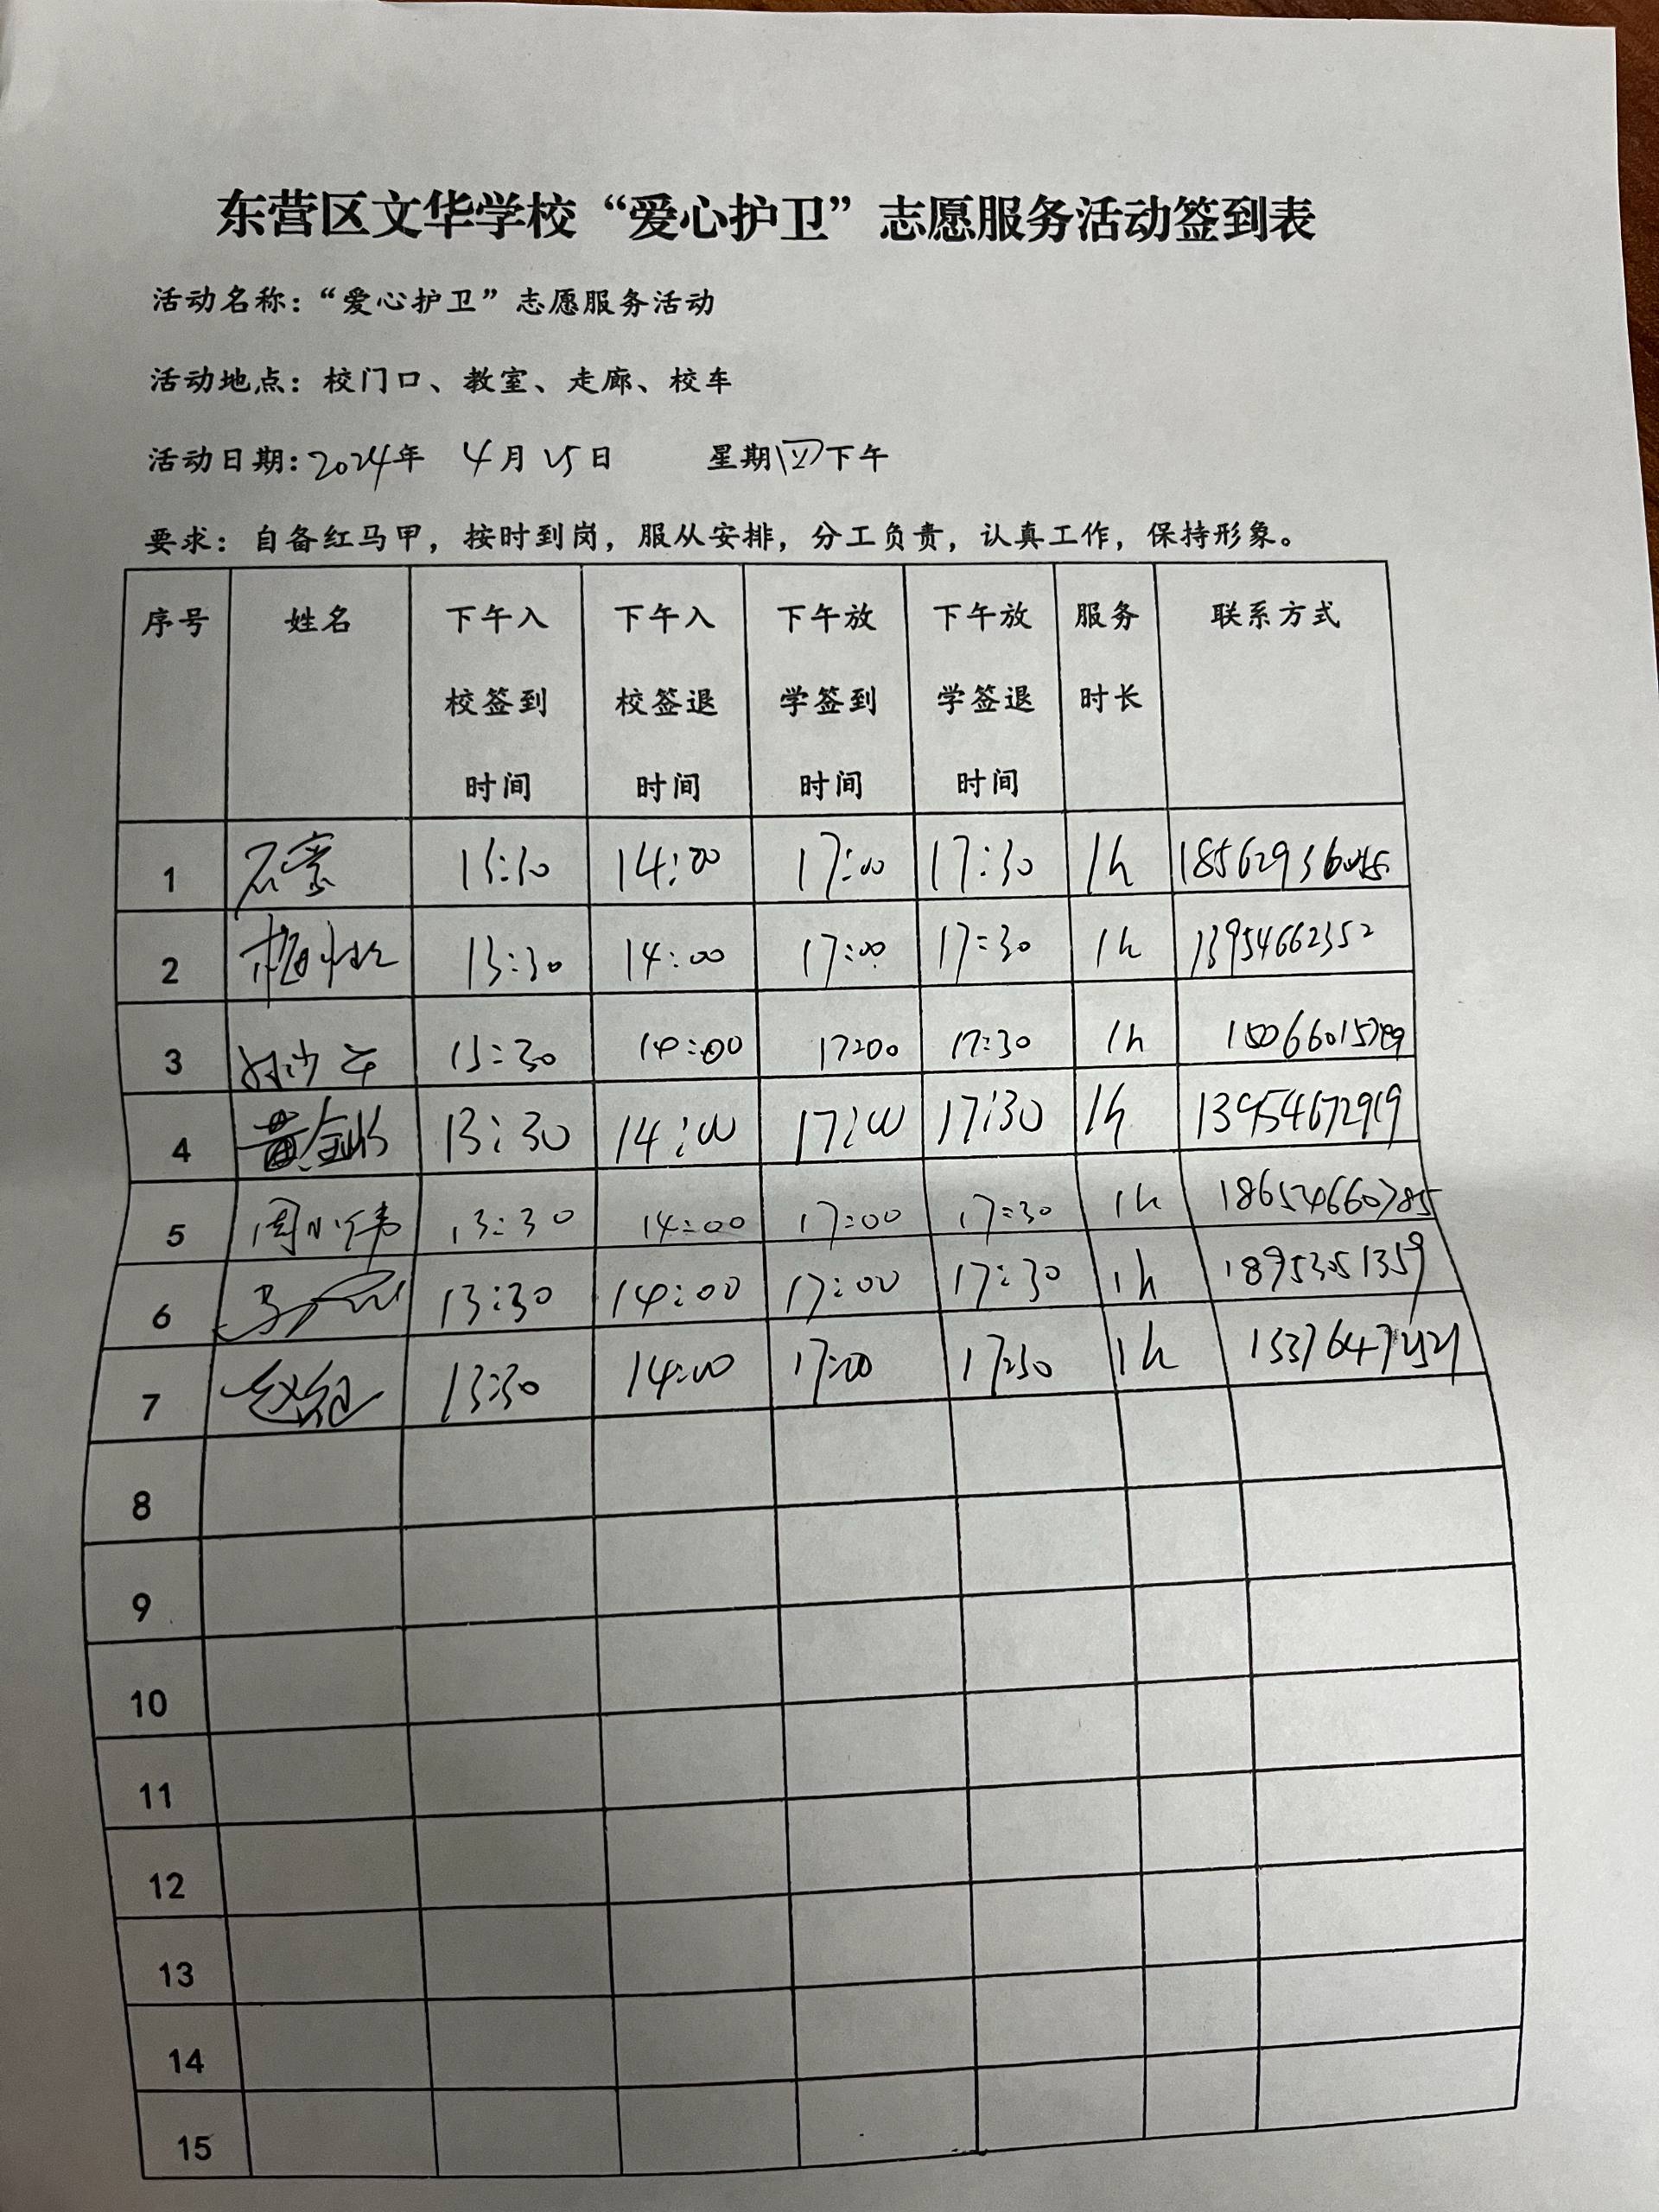 东营区文华学校“爱心护卫”志愿服务活动签到表
活动名称：“爱心护卫”志愿服务活动
活动地点：校门口、教室、走廊、校车
活动日期：2024年 4月25日 星期四下午
要求：自备红马甲，按时到岗，服从安排，分工负责，认真工作，保持形象。
序号 姓名 下午入 下午入 下午放 下午放 服务 联系方式
校签到 校签退 学签到 学签退 时长
时间 时间 时间 时间
1 13:30 14:00 17:00 17:30 1h
2 13:30 14:00 17:00 17:30 1h 13954662352
3 13:30 14:00 17:00 17:30 1h
4 13:30 14:00 17:00 17:30 1h 13954672919
5 周小伟 13:30 14:00 17:00 17:30 1h 18654660785
6 13:30 14:00 17:00 17:30 1h 18953051359
7 13:30 14:00 17:00 17:30 1h
8
9
10
11
12
13
14
15